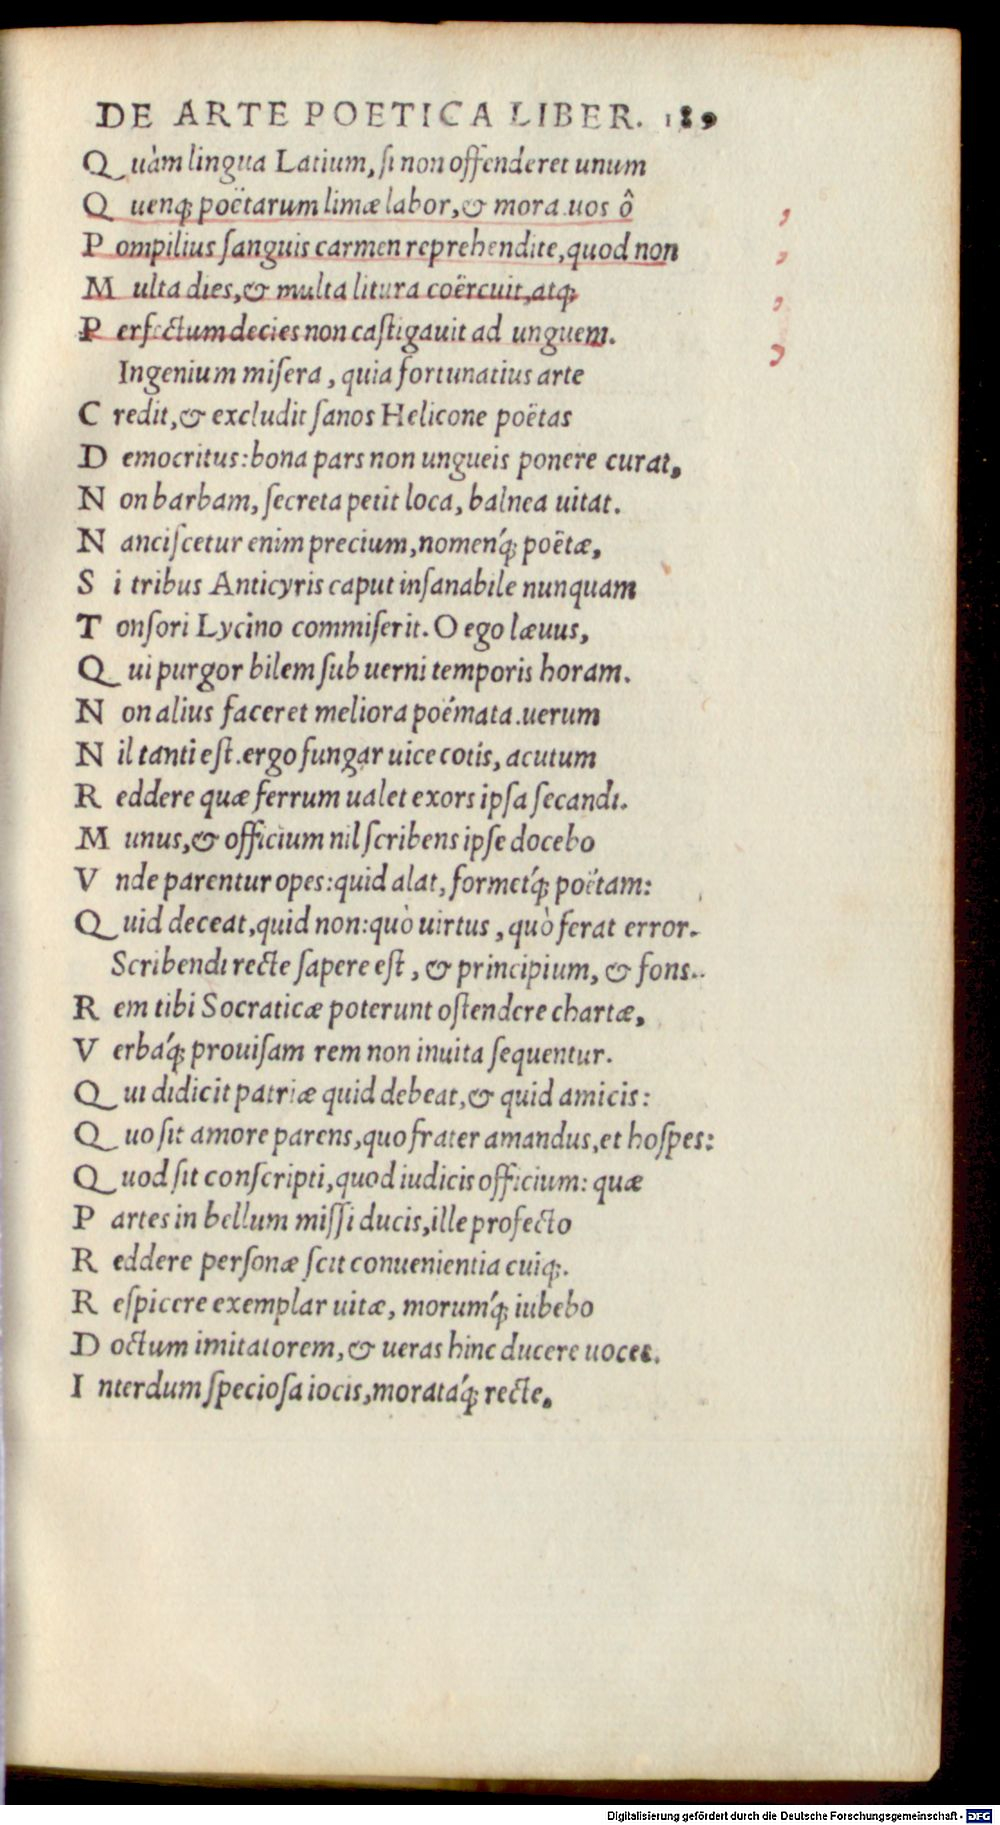 DE ARTE POETICA LIBER. 189
Quàm lingua Latium, ſi non offenderet unum
Quenq; poëtarum limæ labor, & mora. uos ô
Pompilius ſanguis carmen reprehendite, quod non
Multa dies, & multa litura coërcuit, atq;
Perfectum decies non caſtigauit ad unguem.
Ingenium miſera, quia fortunatius arte
Credit, & excludit ſanos Helicone poëtas
Democritus: bona pars non ungueis ponere curat,
Non barbam, ſecreta petit loca, balnea uitat.
Nanciſcetur enim precium, nomen'q; poëtæ,
Si tribus Anticyris caput inſanabile nunquam
Tonſori Lycino commiſerit. O ego læuus,
Qui purgor bilem ſub uerni temporis horam.
Non alius faceret meliora poémata. uerum
Nil tanti eſt. ergo fungar uice cotis, acutum
Reddere quæ ferrum ualet exors ipſa ſecandi.
Munus, & officium nil ſcribens ipſe docebo
Vnde parentur opes: quid alat, formet'q; poëtam:
Quid deceat, quid non: quò uirtus, quò ferat error.
Scribendi recte ſapere eſt, & principium, & fons.
Rem tibi Socraticæ poterunt oſtendere chartæ,
Verbá'q; prouiſam rem non inuita ſequentur.
Qui didicit patriæ quid debeat, & quid amicis:
Quo ſit amore parens, quo frater amandus, et hoſpes:
Quod ſit conſcripti, quod iudicis officium: quæ
Partes in bellum miſſi ducis, ille profecto
Reddere perſonæ ſcit conuenientia cuiq;.
Reſpicere exemplar uitæ, morum'q; iubebo
Doctum imitatorem, & ueras hinc ducere uoces.
Interdum ſpecioſa iocis, moratá'q; recte,
Digitalisierung gefördert durch die Deutsche Forschungsgemeinschaft - DFG